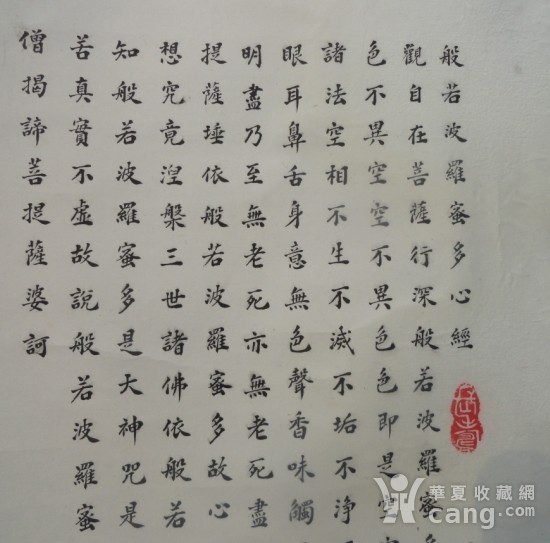 般若波羅蜜多心經
觀自在菩薩行深般若波羅蜜
色不異空空不異色色即是空
諸法空相不生不滅不垢不浄
眼耳鼻舌身意無色聲香味觸
明盡乃至無老死亦無老死盡
提薩埵依般若波羅蜜多故心
想究竟涅槃三世諸佛依般若
知般若波羅蜜多是大神咒是
苦真實不虛故說般若波羅蜜
僧揭諦菩提薩婆訶
華夏收藏網
cang.com